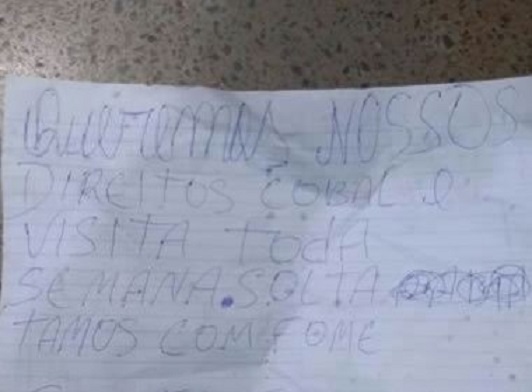 Queremos NOSSOS
DIREITOS COBAL e
VISITA TODA
SEMANA. SOLTA
TAMOS COM FOME